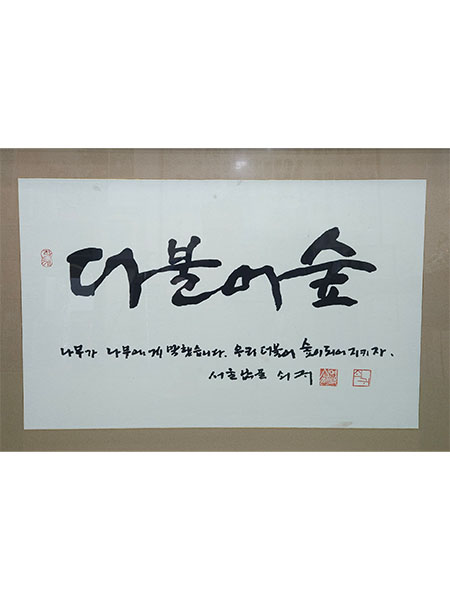 더불어숲
나무가 나무에게 말했습니다. 우리 더불어 숲이되어 지키자.
서초
쇠귀